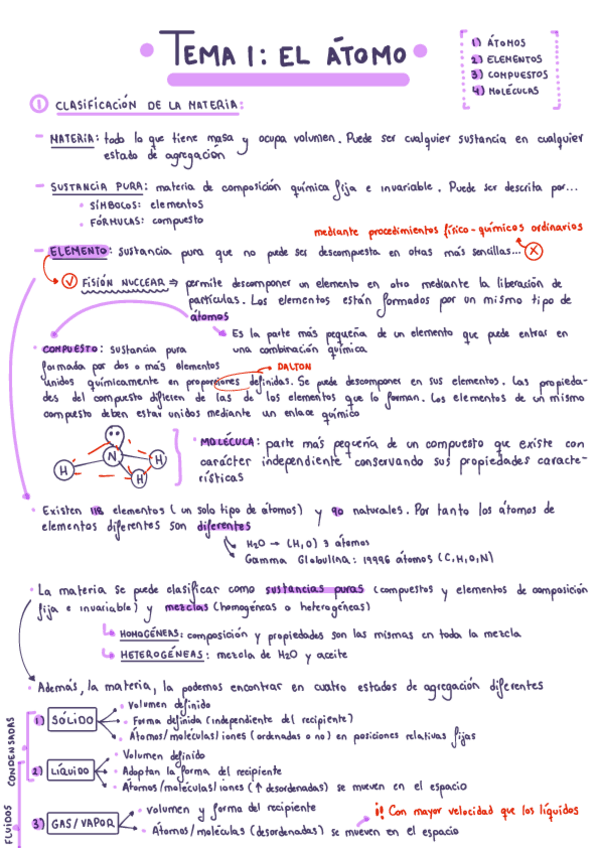 TEMA 1: EL ÁTOMO
1) ÁTOMOS
2) ELEMENTOS
3) COMPUESTOS
4) MOLÉCULAS
① CLASIFICACIÓN DE LA MATERIA:
- MATERIA: todo lo que tiene masa y ocupa volumen. Puede ser cualquier sustancia en cualquier
estado de agregación
- SUSTANCIA PURA: materia de composición química fija e invariable. Puede ser descrita por...
• SÍMBOLOS: elementos
• FÓRMULAS: compuesto
mediante procedimientos físico-químicos ordinarios
- ELEMENTO: sustancia pura que no puede ser descompuesta en otras más sencillas... X
✓ FISIÓN NUCLEAR ⇒ permite descomponer un elemento en otro mediante la liberación de
partículas. Los elementos están formados por un mismo tipo de
átomos
Es la parte más pequeña de un elemento que puede entrar en
una combinación química
• COMPUESTO: sustancia pura
formada por dos o más elementos
DALTON
unidos químicamente en proporciones definidas. Se puede descomponer en sus elementos. Las propieda-
des del compuesto difieren de las de los elementos que lo forman. Los elementos de un mismo
compuesto deben estar unidos mediante un enlace químico
H N H H
• MOLÉCULA: parte más pequeña de un compuesto que existe con
carácter independiente conservando sus propiedades caracte-
rísticas
• Existen 118 elementos (un solo tipo de átomos) y 90 naturales. Por tanto los átomos de
elementos diferentes son diferentes
H2O → (H,O) 3 átomos
Gamma Globulina: 19996 átomos (C,H,O,N)
• La materia se puede clasificar como sustancias puras (compuestos y elementos de composición
fija e invariable) y mezclas (homogéneas o heterogéneas)
HOMOGÉNEAS: composición y propiedades son las mismas en toda la mezcla
HETEROGÉNEAS: mezcla de H2O y aceite
• Además, la materia, la podemos encontrar en cuatro estados de agregación diferentes
CONDENSADAS
FLUIDOS
1) SÓLIDO
• Volumen definido
• Forma definida (independiente del recipiente)
• Átomos/moléculas/iones (ordenadas o no) en posiciones relativas fijas
2) LÍQUIDO
• Volumen definido
• Adoptan la forma del recipiente
• Átomos/moléculas/iones (↑ desordenadas) se mueven en el espacio
3) GAS/VAPOR
• volumen y forma del recipiente
• Átomos/moléculas (desordenadas) se mueven en el espacio
¡! Con mayor velocidad que los líquidos